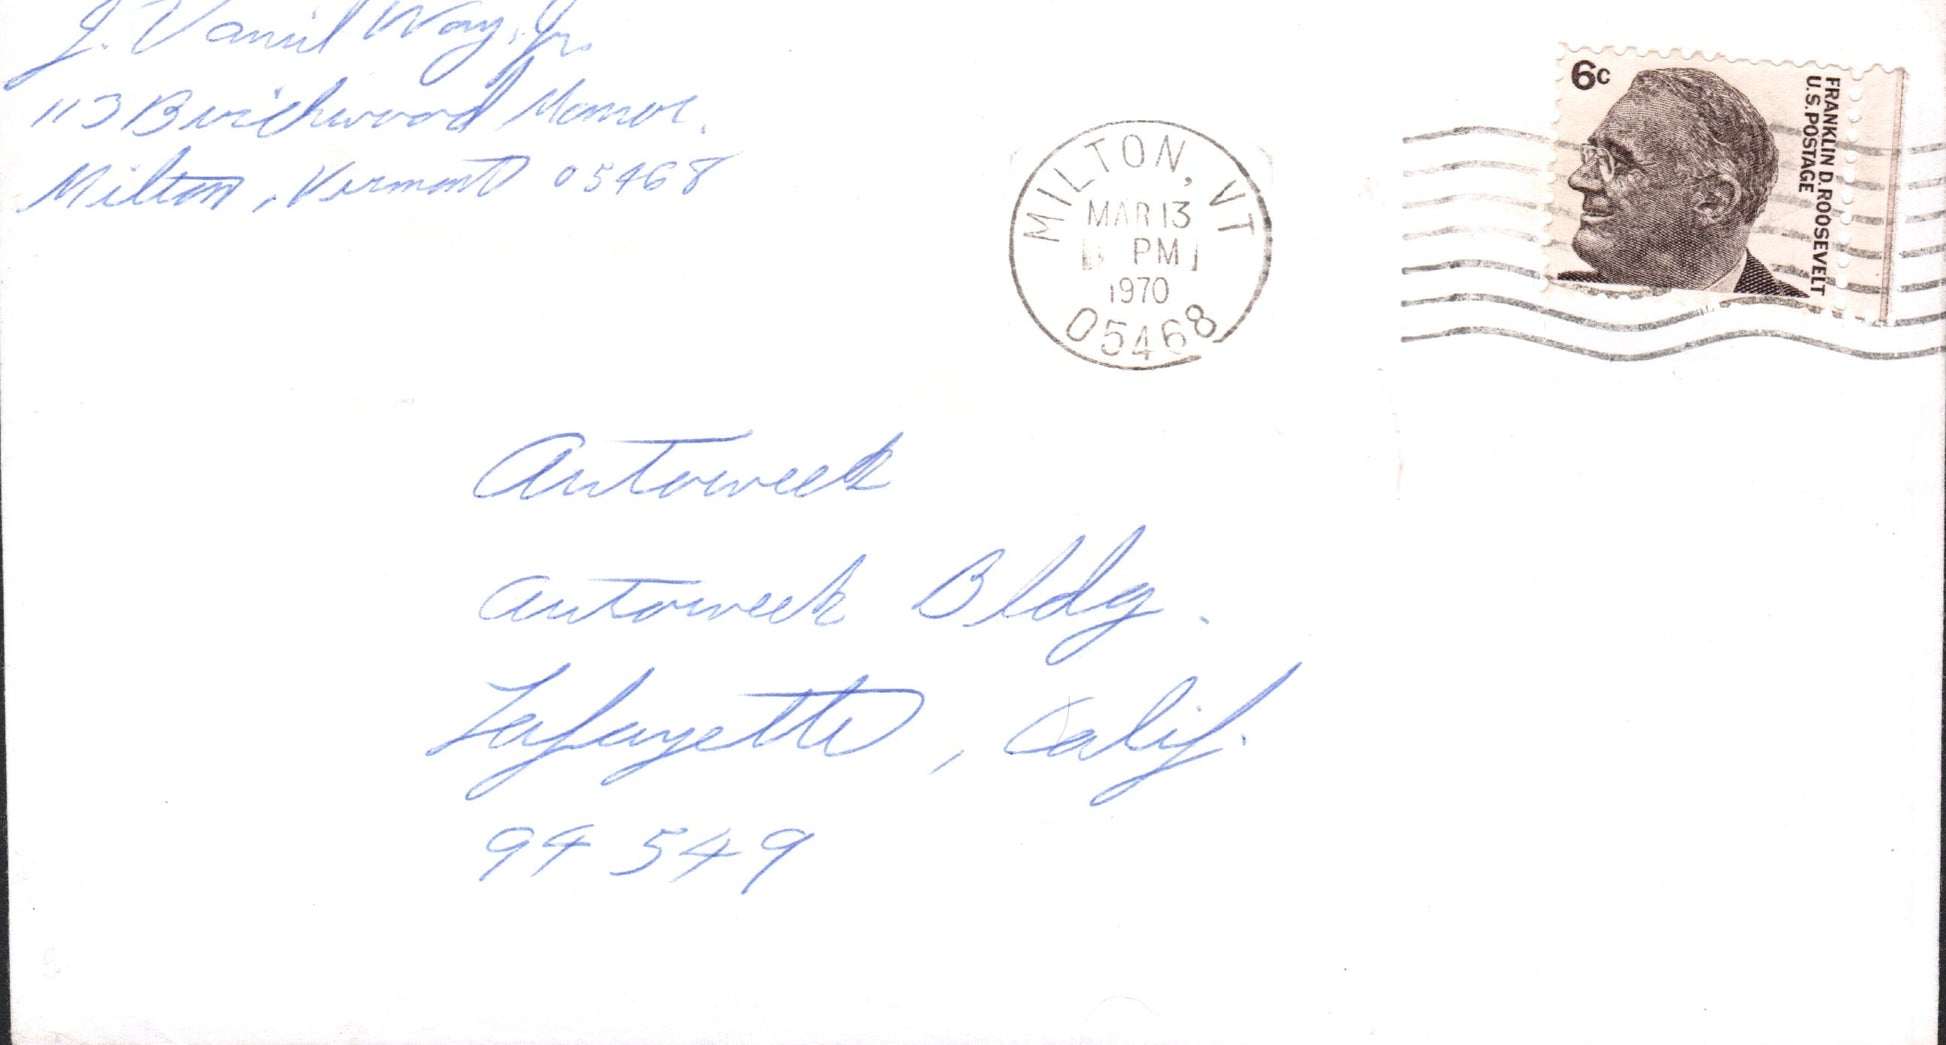 J. Daniel Way, Jr.
113 Birchwood Manor.
Milton, Vermont 05468
MILTON, VT
MAR 13
PM
1970
05468
6c
FRANKLIN D. ROOSEVELT
U.S. POSTAGE
Autoweek
Autoweek Bldg.
Lafayette, Calif.
94549